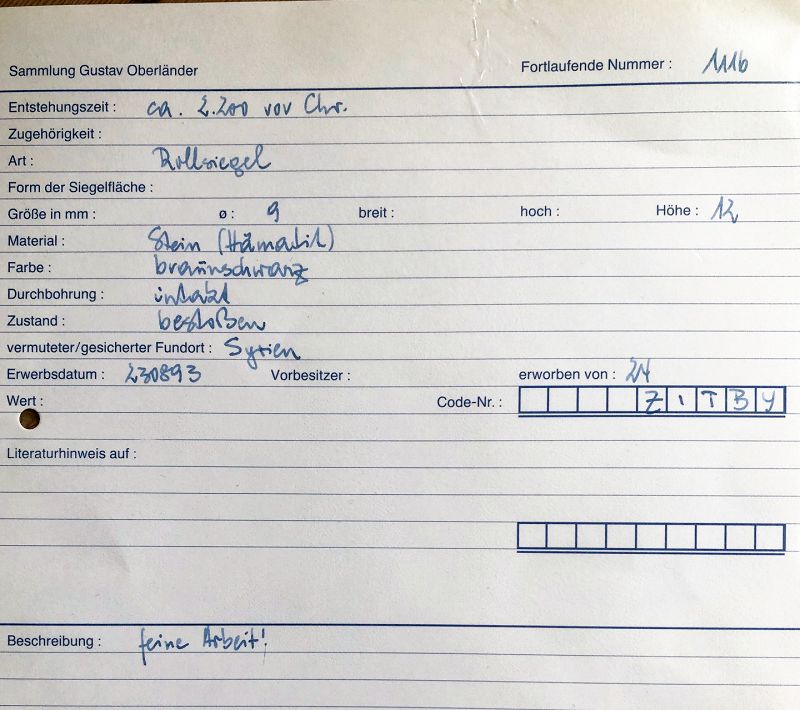 Sammlung Gustav Oberländer Fortlaufende Nummer : 1116
Entstehungszeit : ca. 2.200 vor Chr.
Zugehörigkeit :
Art : Rollsiegel
Form der Siegelfläche :
Größe in mm : ø : 9 breit : hoch : Höhe : 12
Material : Stein (Hämatit)
Farbe : braunschwarz
Durchbohrung : intakt
Zustand : bestoßen
vermuteter/gesicherter Fundort : Syrien
Erwerbsdatum : 230893 Vorbesitzer : erworben von : 24
Wert : Code-Nr. : Z I T B Y
Literaturhinweis auf :
Beschreibung : feine Arbeit!